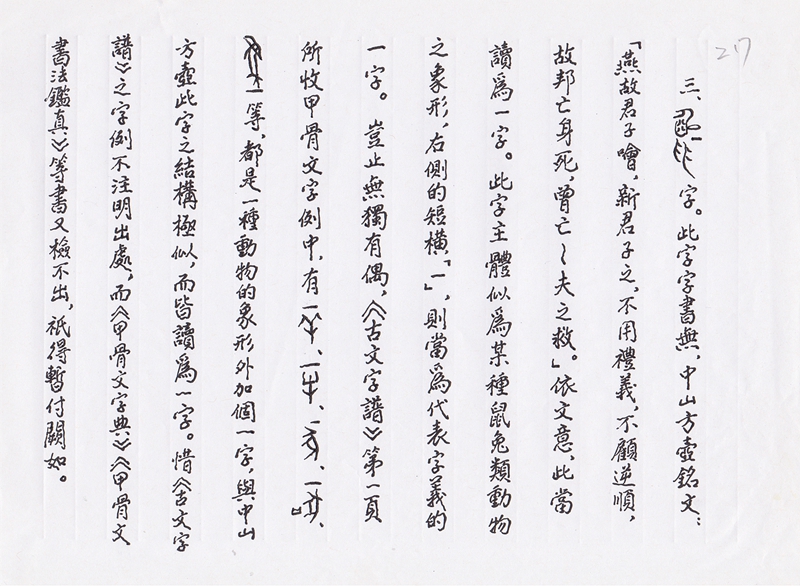 217
三、字。此字字書無，中山方壺銘文：
「燕故君子噲，新君子之，不用禮義，不顧逆順，
故邦亡身死，曾亡一夫之救。」依文意，此當
讀爲一字。此字主體似爲某種鼠兔類動物
之象形，右側的短橫「一」，則當爲代表字義的
一字。豈止無獨有偶，《古文字譜》第一頁
所收甲骨文字例中，有
等，都是一種動物的象形外加個一字，與中山
方壺此字之結構極似，而皆讀爲一字。惜《古文字
譜》之字例不注明出處，而《甲骨文字典》《甲骨文
書法鑑真》等書又檢不出，祇得暫付闕如。